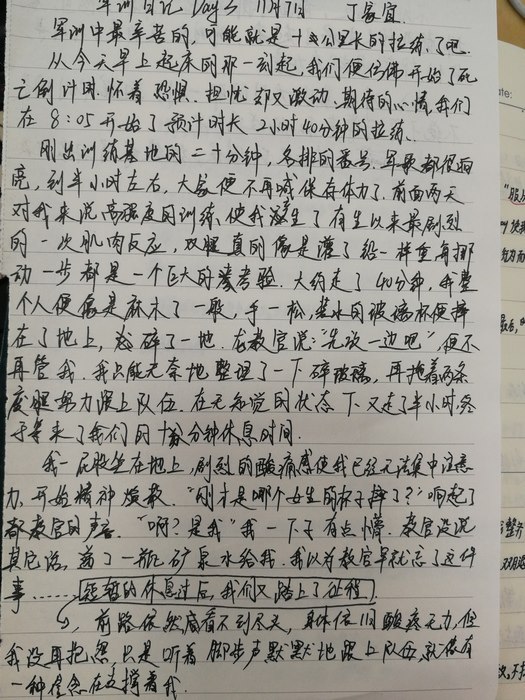 军训日记 Day 3 11月7日 丁家宜
军训中最辛苦的,可能就是十公里长的拉练了吧.
从今天早上起来的那一刻起,我们便仿佛开始了死
亡倒计时.怀着恐惧、担忧却又激动、期待的心情,我们
在8:05开始了预计时长2小时40分钟的拉练.
刚出训练基地的二十分钟,各排的番号、军歌都很响
亮,到半小时左右,大家便不再喊保存体力了.前面两天
对我来说高强度的训练使我产生了有生以来最剧烈
的一次肌肉反应,双腿真的像是灌了铅一样重,每挪
动一步都是一个巨大的考验.大约走了40分钟,我整
个人便像是麻木了一般,手一松,装水的玻璃杯便摔
在了地上,碎了一地.龙教官说:“先放一边吧”,但不
再管我.我只能无奈地整理了一下碎玻璃,再拖着两条
废腿努力跟上队伍.在无知觉的状态下又走了半小时,终
于等来了我们的十分钟休息时间.
我一屁股坐在地上,剧烈的酸痛感使我已经无法集中注意
力,开始精神涣散.“刚才是哪个女生的杯子摔了?”响起了
教官的声音.“啊?是我”我一下子有点懵.教官没说
其它话,递了一瓶矿泉水给我.我以为教官早就忘了这件
事……短暂的休息过后,我们又踏上了征程.
前路依然看不到尽头,身体依旧酸疼无力,但
我没再抱怨,只是听着脚步声默默地跟上队伍,就像有
一种信念在支撑着我.